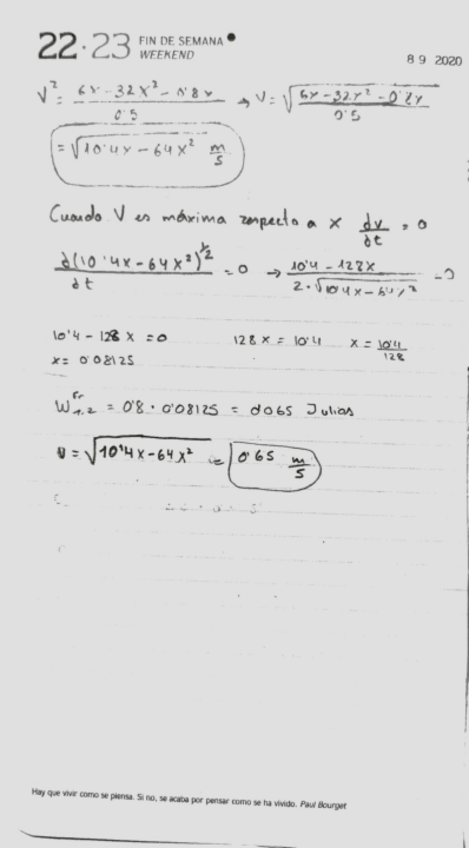 22·23 FIN DE SEMANA
WEEKEND
8 9 2020
V² = 6x - 32x² - 0'8x / 0'5 → V = √(6x - 32x² - 0'8x / 0'5)
= √(10'4x - 64x²) m/s
Cuando V es máxima respecto a x dv/dt = 0
d(10'4x - 64x²)^½ / dt = 0 → 10'4 - 128x / 2·√(10'4x - 64x²) = 0
10'4 - 128x = 0 128x = 10'4 x = 10'4/128
x = 0'08125
W₁,₂^Fr = 0'8 · 0'08125 = 0'065 Julios
v = √(10'4x - 64x²) = 0'65 m/s
Hay que vivir como se piensa. Si no, se acaba por pensar como se ha vivido. Paul Bourget